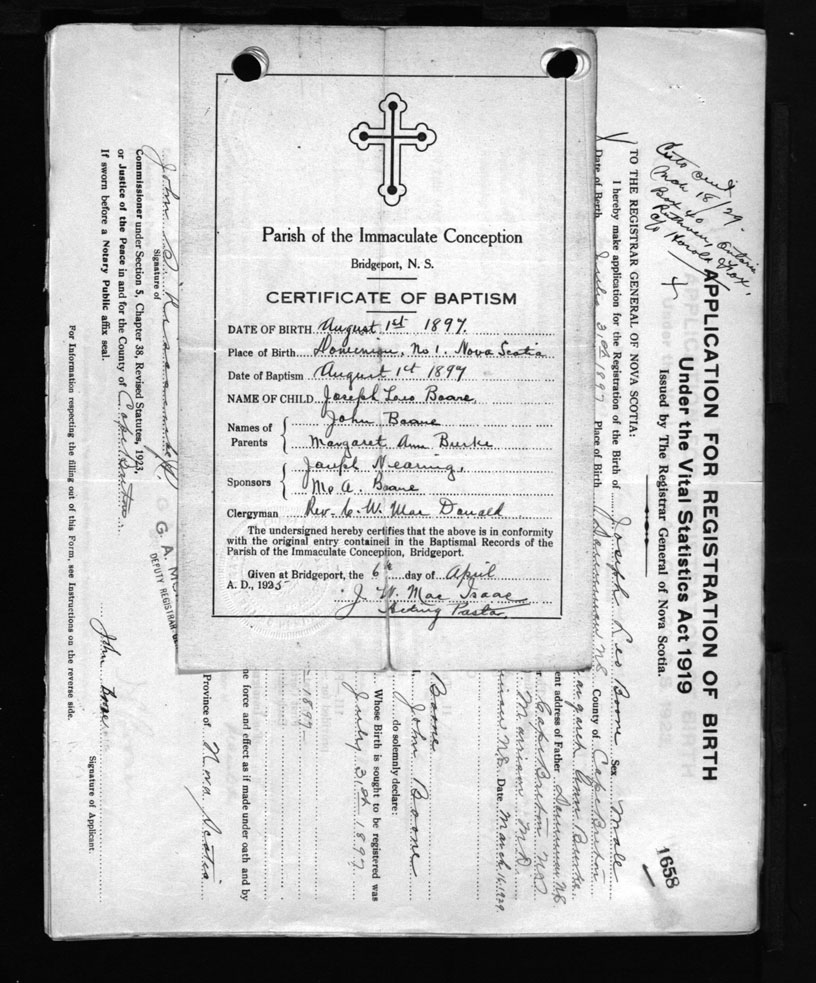 Parish of the Immaculate Conception
Bridgeport, N. S.
CERTIFICATE OF BAPTISM
DATE OF BIRTH August 1st 1897.
Place of Birth Dominion, No 1. Nova Scotia
Date of Baptism August 1st 1897
NAME OF CHILD Joseph Leo Boane,
Names of Parents John Boane
Margaret Ann Burke
Sponsors Joseph Nearing,
A. Boane
Clergyman Rev. C. W. Mac Donald
The undersigned hereby certifies that the above is in conformity
with the original entry contained in the Baptismal Records of the
Parish of the Immaculate Conception, Bridgeport.
Given at Bridgeport, the 6th day of April
A. D., 1925
J. W. Mac Isaac
Acting Pastor
APPLICATION FOR REGISTRATION OF BIRTH
Under the Vital Statistics Act 1919
Issued by The Registrar General of Nova Scotia.
1658
Nov 18/29.
Box 40
Ontario
c/o Harold
TO THE REGISTRAR GENERAL OF NOVA SCOTIA:
I hereby make application for the Registration of the Birth of Joseph Leo Boone Sex Male
Date of Birth July 31st 1897 Place of Birth Dominion N.S. County of Cape Breton
Margaret Ann Burke
ent address of Father Dominion N.S.
Cape Breton N.S.
Morrison M.D.
minion N.S. Date March 16, 1929
Boone
I, John Boone
do solemnly declare:
Whose Birth is sought to be registered was
July 31st 1897
1897
me force and effect as if made under oath and by
Province of Nova Scotia
G. A. M
DEPUTY REGISTRAR G
Signature of
Commissioner under Section 5, Chapter 38, Revised Statutes, 1923,
or Justice of the Peace in and for the County of Cape Breton
If sworn before a Notary Public affix seal.
John Boone
Signature of Applicant.
For Information respecting the filling out of this Form, see Instructions on the reverse side.